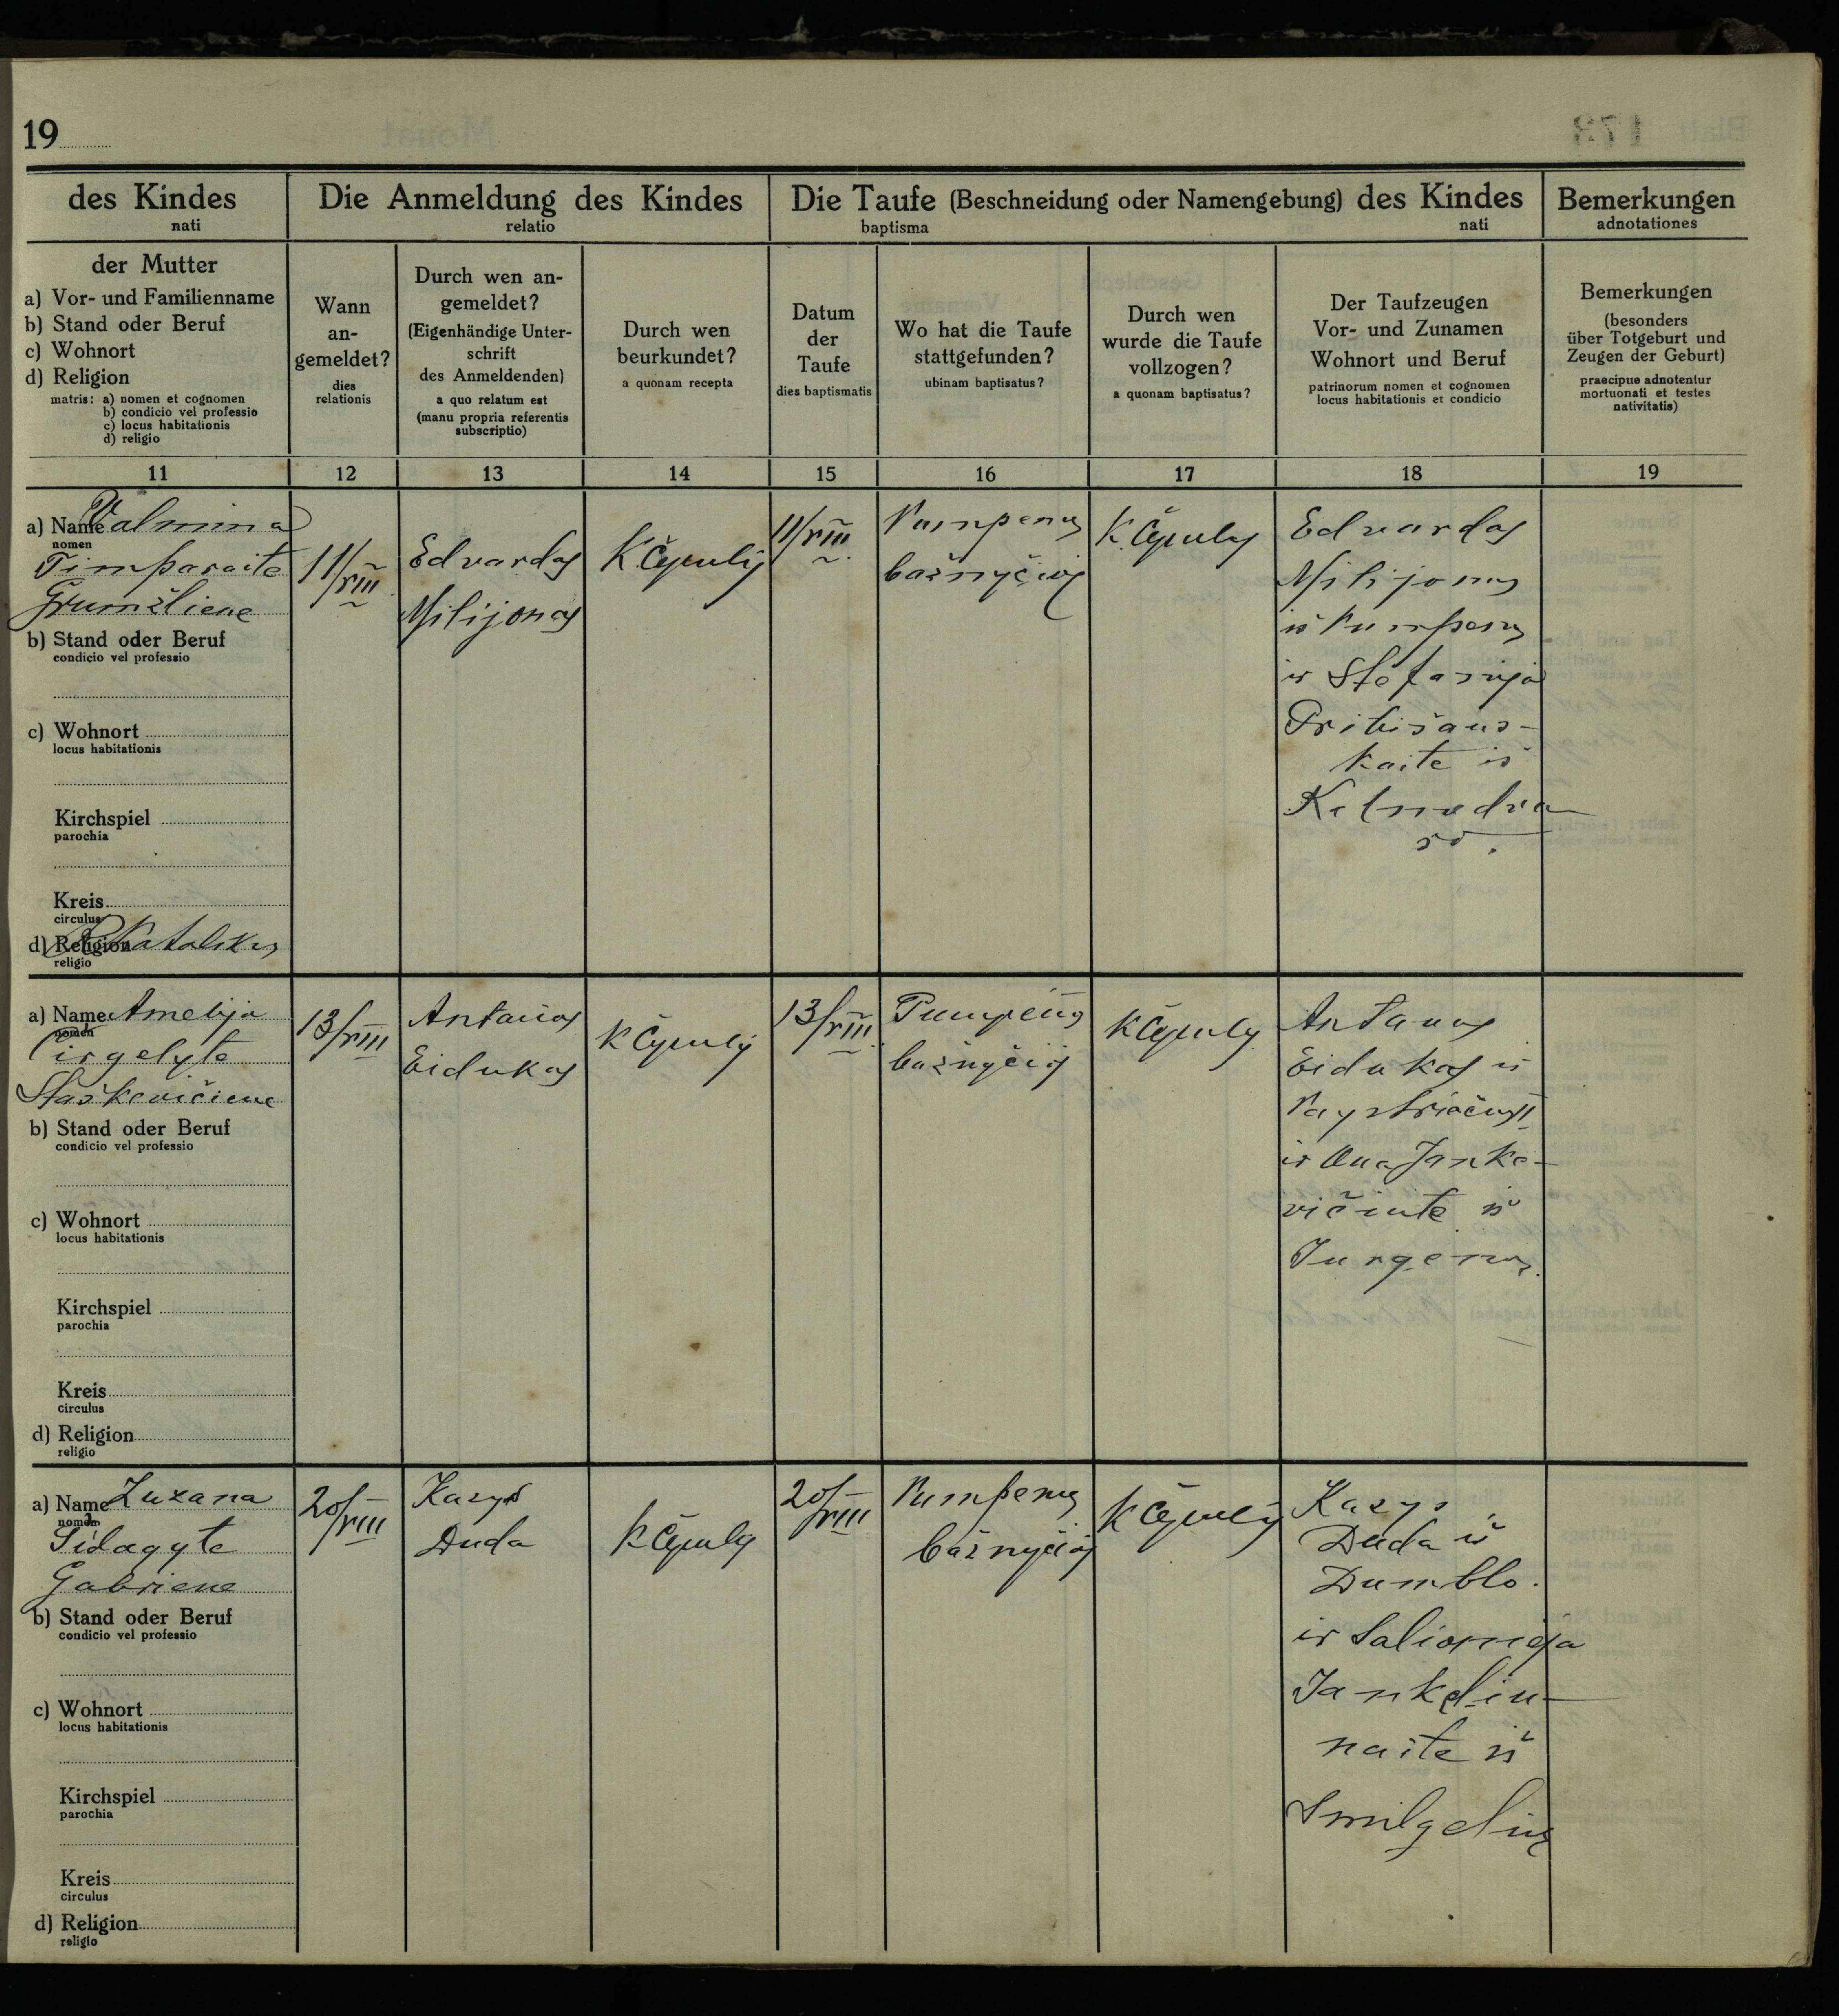 19
des Kindes
nati
Die Anmeldung des Kindes
relatio
Die Taufe (Beschneidung oder Namengebung) des Kindes
baptisma nati
Bemerkungen
adnotationes
der Mutter
a) Vor- und Familienname
b) Stand oder Beruf
c) Wohnort
d) Religion
matris: a) nomen et cognomen
b) condicio vel professio
c) locus habitationis
d) religio
Wann
an-
gemeldet?
dies
relationis
Durch wen an-
gemeldet?
(Eigenhändige Unter-
schrift
des Anmeldenden)
a quo relatum est
(manu propria referentis
subscriptio)
Durch wen
beurkundet?
a quonam recepta
Datum
der
Taufe
dies baptismatis
Wo hat die Taufe
stattgefunden?
ubinam baptisatus?
Durch wen
wurde die Taufe
vollzogen?
a quonam baptisatus?
Der Taufzeugen
Vor- und Zunamen
Wohnort und Beruf
patrinorum nomen et cognomen
locus habitationis et condicio
Bemerkungen
(besonders
über Totgeburt und
Zeugen der Geburt)
praecipue adnotentur
mortuonati et testes
nativitatis)
11 12 13 14 15 16 17 18 19
a) Name Valmina
nomen
Timparaite
Grumšliene
b) Stand oder Beruf
condicio vel professio
c) Wohnort
locus habitationis
Kirchspiel
parochia
Kreis
circulus
d) Religion R Katalikų
religio
11/VIII
Edvardas
Milijonas
K Čepulys
11/VIII
Pumpenų
bažnyčioj
K Čepulys
Edvardas
Milijonas
iš Pumpenų
ir Stefanija
Pribišaus-
kaite iš
Kelmedva
ro.
a) Name Amelija
nomen
Cirgelyte
Staškevičiene
b) Stand oder Beruf
condicio vel professio
c) Wohnort
locus habitationis
Kirchspiel
parochia
Kreis
circulus
d) Religion
religio
13/VIII
Antanas
Eidukas
K Čepulys
13/VIII
Pumpėnų
bažnyčioj
K Čepulys
Antanas
Eidukas iš
ir Ona Janke-
vičiute iš
Jurgenų.
a) Name Zuzana
nomen
Sidagyte
Gabriene
b) Stand oder Beruf
condicio vel professio
c) Wohnort
locus habitationis
Kirchspiel
parochia
Kreis
circulus
d) Religion
religio
20/VIII
Kazys
Duda
K Čepulys
20/VIII
Pumpenų
bažnyčioj
K Čepulys
Kazys
Duda iš
Dumblo.
ir Saliomėja
Jankeliu-
naite iš
Smilgelių